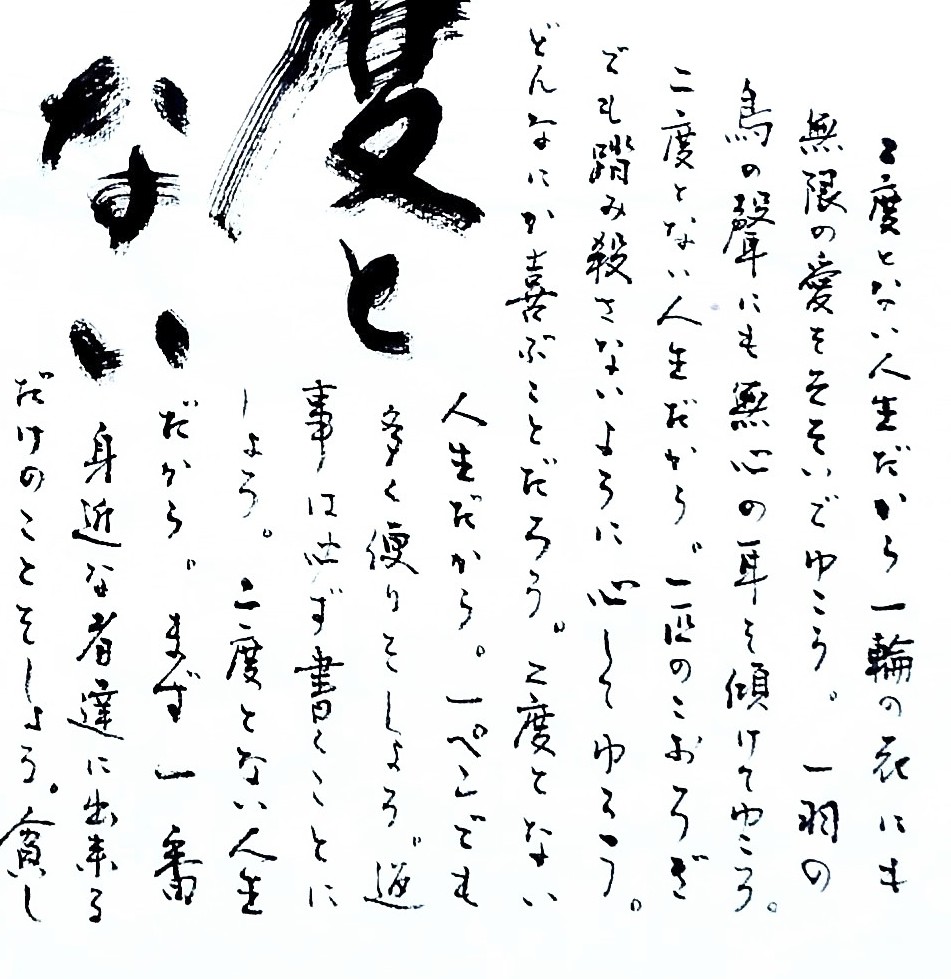 度と
ない
二度とない人生だから一輪の花にも
無限の愛をそそいでゆこう。一羽の
鳥の聲にも無心の耳を傾けてゆこう。
二度とない人生だから、一匹のこおろぎ
でも踏み殺さないように心してゆこう。
どんなにか喜ぶことだろう。二度とない
人生だから。一ぺんでも
多く便りをしよう。返
事は必ず書くことに
しよう。二度とない人生
だから。まず一番
身近な者達に出来る
だけのことをしよう。貧し